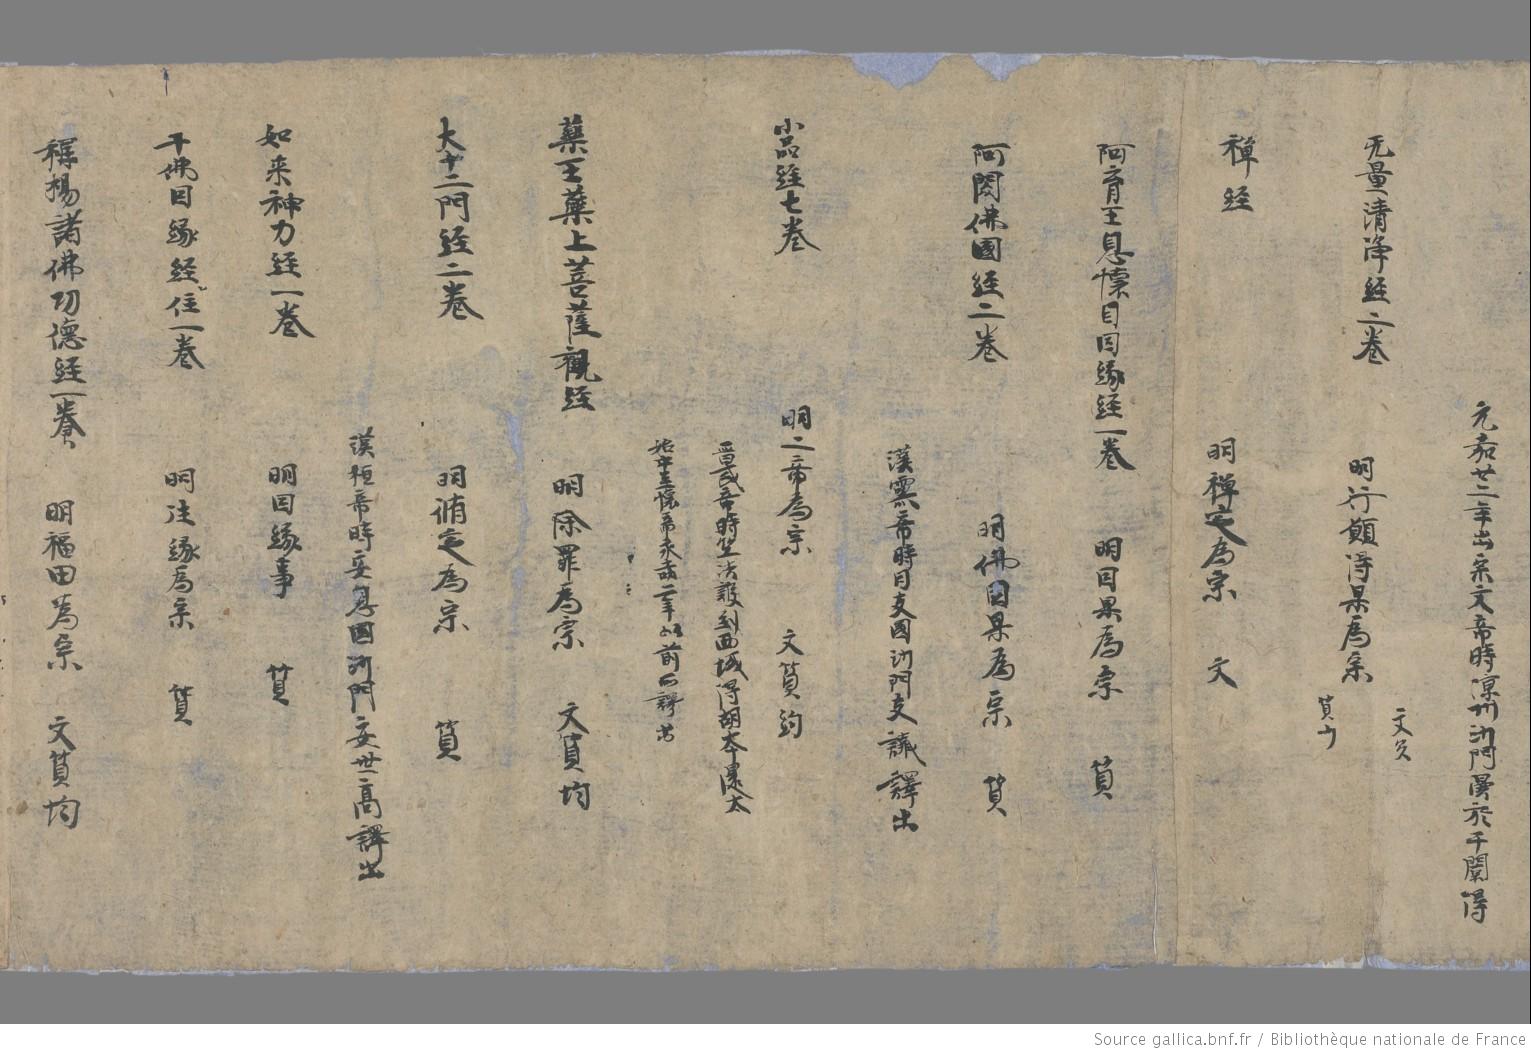 元嘉廿二年出宋文帝時涼州沙門曇於于闐得
无量清淨經二卷 明行願得果為宗 文少
質少
禅經 明禅定為宗 文
阿育王息懷目因緣經一卷 明因果為宗 質
阿閦佛國經二卷 明佛因果為宗 質
漢靈帝時月支國沙門支讖譯出
小品經七卷 明二帝為宗 文質均
晋武帝時竺法護到西域得胡本還太
始中至懷帝永嘉二年以前所譯出
藥王藥上菩薩觀經 明除罪為宗 文質均
大十二門經二卷 明脩定為宗 質
漢桓帝時安息國沙門安世高譯出
如来神力經一卷 明因緣事 質
千佛因緣經住一卷 明法緣為宗 質
稱揚諸佛功德經一卷 明福田為宗 文質均
Source gallica.bnf.fr / Bibliothèque nationale de France